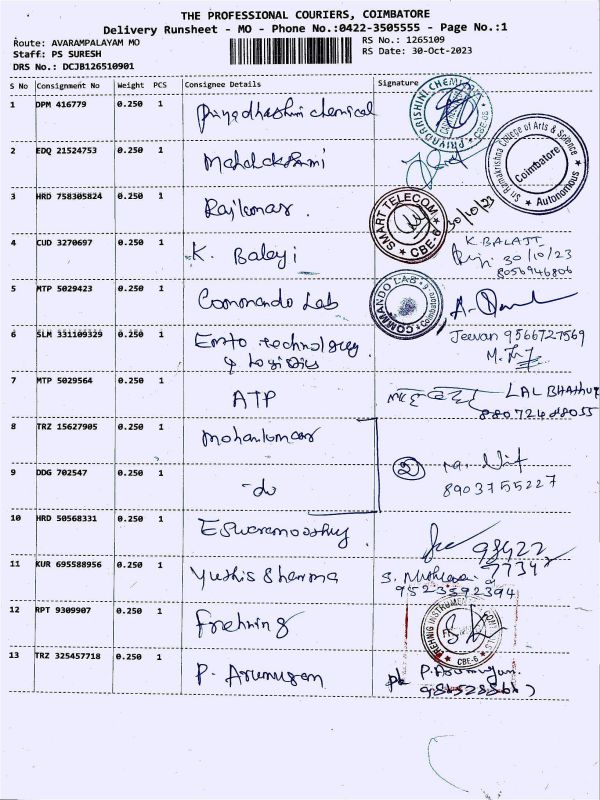 THE PROFESSIONAL COURIERS, COIMBATORE
Delivery Runsheet - MO - Phone No.:0422-3505555 - Page No.:1
Route: AVARAMPALAYAM MO
Staff: PS SURESH
DRS No.: DCJB126510901
RS No.: 1265109
RS Date: 30-Oct-2023
S No Consignment No Weight PCS Consignee Details Signature
1 DPM 416779 0.250 1 Priyadharshini chemical
PRIYADARISHINI CHEMICAL CBE-06
2 EDQ 21524753 0.250 1 Mahalakshmi
Sri Ramakrishna College of Arts & Science Coimbatore Autonomous
3 HRD 758305824 0.250 1 Rajkumar.
SMART TELECOM CBE-6 30/10/23
4 CUD 3270697 0.250 1 K. Balaji
K. BALAJI
30/10/23
8056946806
5 MTP 5029423 0.250 1 Commando Lab
COMMANDO LAB Coimbatore-6
6 SLM 331109329 0.250 1 technology
& Logistics
Jeevan 9566727569
7 MTP 5029564 0.250 1 ATP
LAL
8 TRZ 15627905 0.250 1 Mohankumar
9 DDG 702547 0.250 1 -do
2
8903755227
10 HRD 50568331 0.250 1 Eswaramoorthy.
98422
77342
11 KUR 695588956 0.250 1
9523592394
12 RPT 9309907 0.250 1 Frehnig
FREHNIG INSTRUMENTS CBE-6
13 TRZ 325457718 0.250 1 P. Arumugam
P. Arumugam.